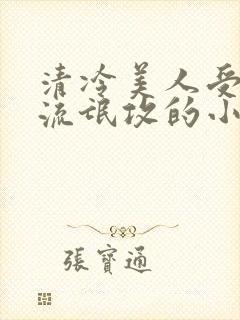 清冷美人受
流氓攻的小
張寶通